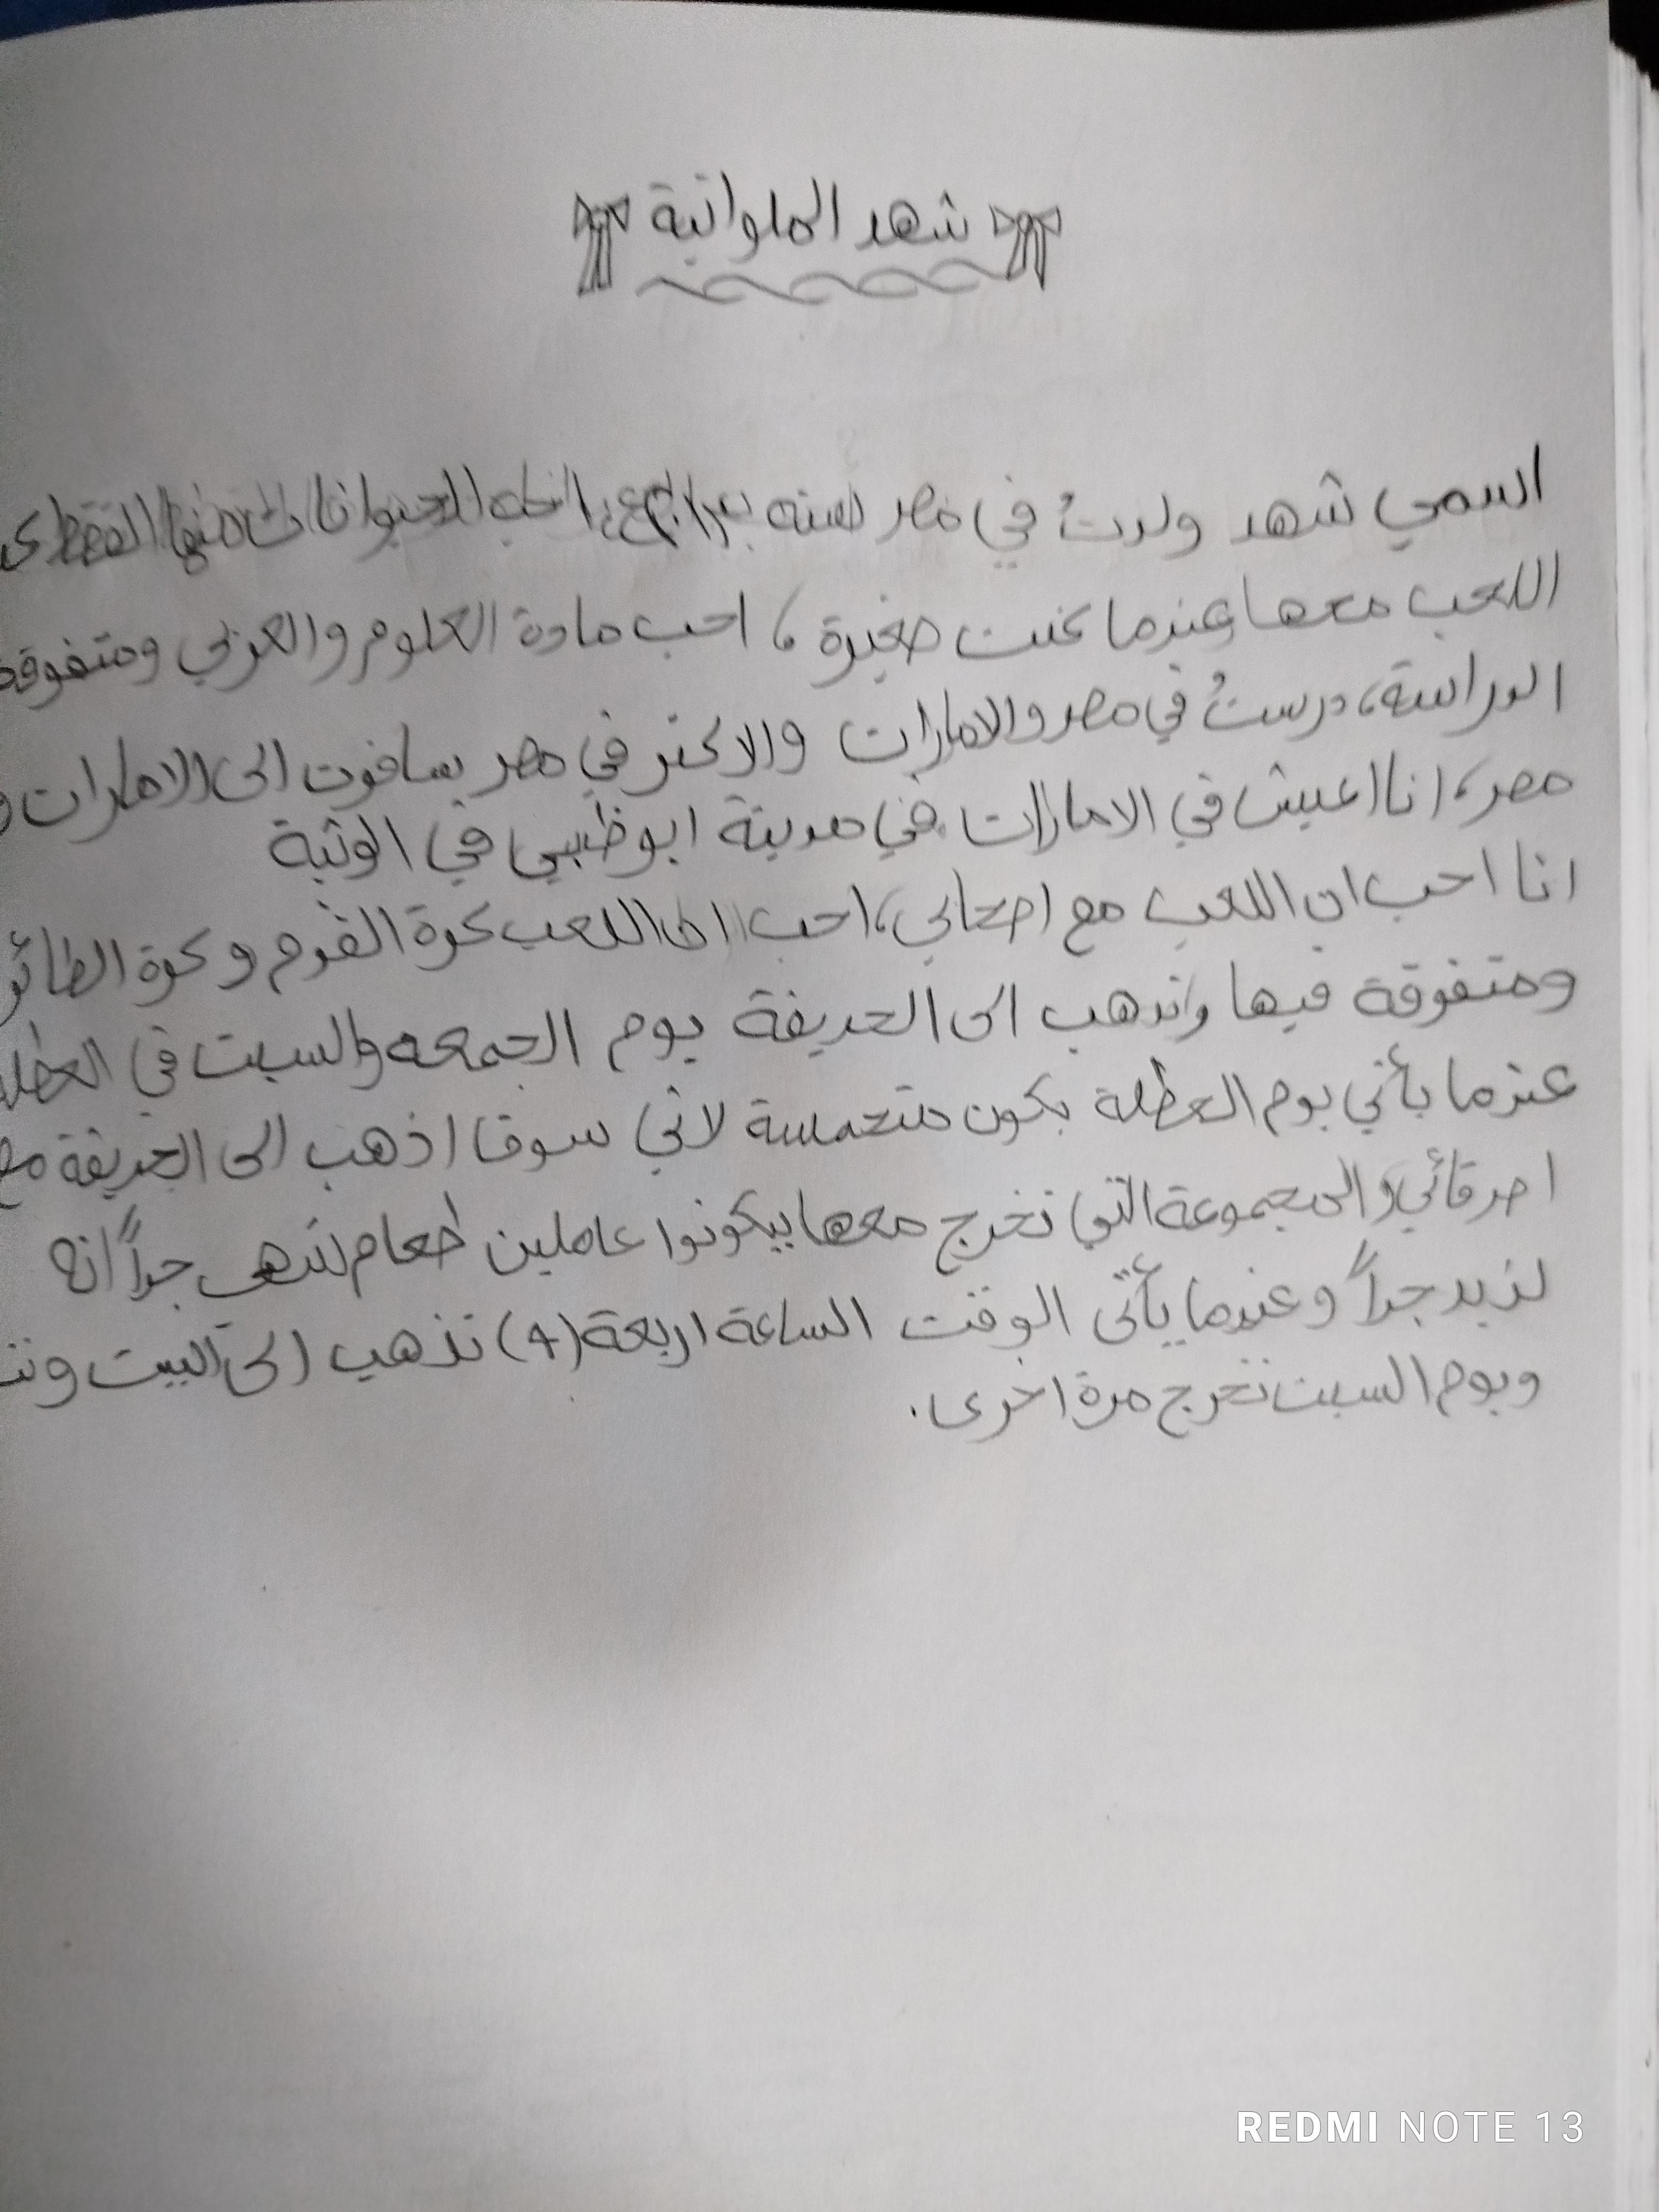 شهد الملواتية
اسمي شهد ولدتُ في مصر لسنه احب الحيوانات منها القطط
اللعب معها وعندما كنت صغيرة، احب مادة العلوم والعربي ومتفوقة
الدراسة، درستُ في مصر والامارات والاكتر في مصر بسافرت الى الامارات
مصر، انا اعيش في الامارات في مدينة ابوظبيي في الوثبة
انا احب ان اللعب مع اصحابي، احب اللعب كرة القدم وكرة الطائر
ومتفوقة فيها واذهب الى الحديقة يوم الجمعه والسبت في العطلة
عندما يأتي يوم العطلة بكون متحمسة لاني سوفا اذهب الى الحديقة مع
اصدقائي والمجموعة التي نخرج معها بيكونوا عاملين طعام شهي جداً انه
لذيد جداً وعندما يأتى الوقت الساعة اربعة (4) نذهب الى البيت
ويوم السبت نخرج مرة اخرى.
REDMI NOTE 13